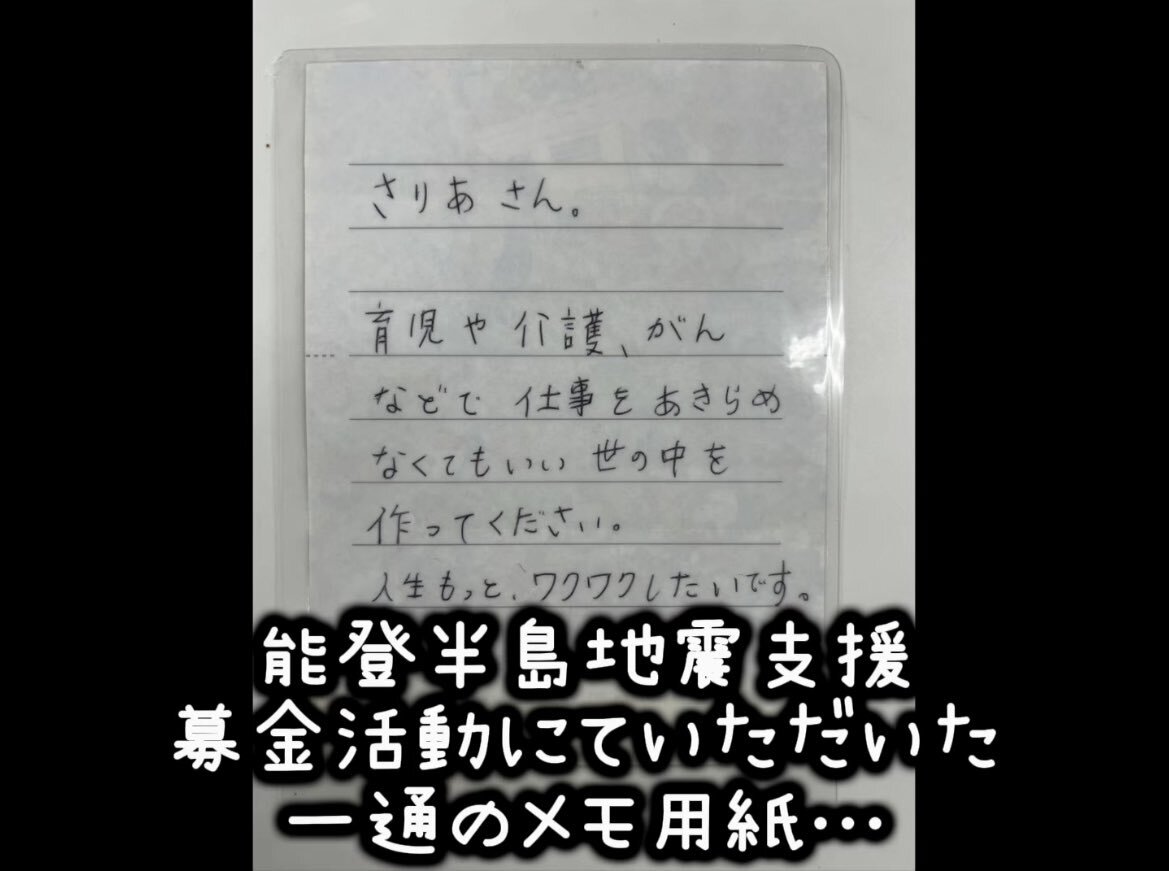 さりあさん。
育児や介護、がん
などで仕事をあきらめ
なくてもいい世の中を
作ってください。
人生もっと、ワクワクしたいです。
能登半島地震支援
募金活動にていただいた
一通のメモ用紙…